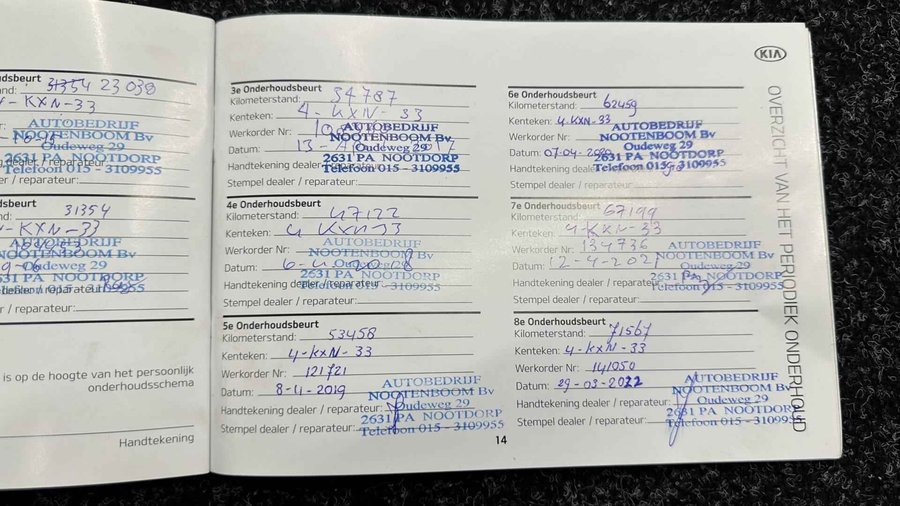 oudsbeurt
31354 23 039
-KXN-33
AUTOBEDRIJF
NOOTENBOOM Bv
Oudeweg 29
2631 PA NOOTDORP
Telefoon 015 - 3109955
dsbeurt
31354
-KXN-33
AUTOBEDRIJF
NOOTENBOOM Bv
Oudeweg 29
2631 PA NOOTDORP
Telefoon 015 - 3109955
is op de hoogte van het persoonlijk
onderhoudsschema
Handtekening
3e Onderhoudsbeurt
Kilometerstand: 34787
Kenteken: 4-KXN-33
Werkorder Nr:
Datum: 13-
Handtekening dealer / reparateur:
Stempel dealer / reparateur:
AUTOBEDRIJF
NOOTENBOOM Bv
Oudeweg 29
2631 PA NOOTDORP
Telefoon 015 - 3109955
4e Onderhoudsbeurt
Kilometerstand: 47122
Kenteken: 4 KXN-33
Werkorder Nr:
Datum: 6-4-2018
Handtekening dealer / reparateur:
Stempel dealer / reparateur:
AUTOBEDRIJF
NOOTENBOOM Bv
Oudeweg 29
2631 PA NOOTDORP
Telefoon 015 - 3109955
5e Onderhoudsbeurt
Kilometerstand: 53458
Kenteken: 4-KXN-33
Werkorder Nr: 121721
Datum: 8-4-2019
Handtekening dealer / reparateur:
Stempel dealer / reparateur:
AUTOBEDRIJF
NOOTENBOOM Bv
Oudeweg 29
2631 PA NOOTDORP
Telefoon 015 - 3109955
14
6e Onderhoudsbeurt
Kilometerstand: 62459
Kenteken: 4-KXN-33
Werkorder Nr:
Datum: 07-04-2020
Handtekening dealer / reparateur:
Stempel dealer / reparateur:
AUTOBEDRIJF
NOOTENBOOM Bv
Oudeweg 29
2631 PA NOOTDORP
Telefoon 015 - 3109955
7e Onderhoudsbeurt
Kilometerstand: 67199
Kenteken: 4-KXN-33
Werkorder Nr: 134736
Datum: 12-4-2021
Handtekening dealer / reparateur:
Stempel dealer / reparateur:
AUTOBEDRIJF
NOOTENBOOM Bv
Oudeweg 29
2631 PA NOOTDORP
Telefoon 015 - 3109955
8e Onderhoudsbeurt
Kilometerstand: 71567
Kenteken: 4-KXN-33
Werkorder Nr: 141050
Datum: 29-03-2022
Handtekening dealer / reparateur:
Stempel dealer / reparateur:
AUTOBEDRIJF
NOOTENBOOM Bv
Oudeweg 29
2631 PA NOOTDORP
Telefoon 015 - 3109955
KIA
OVERZICHT VAN HET PERIODIEK ONDERHOUD